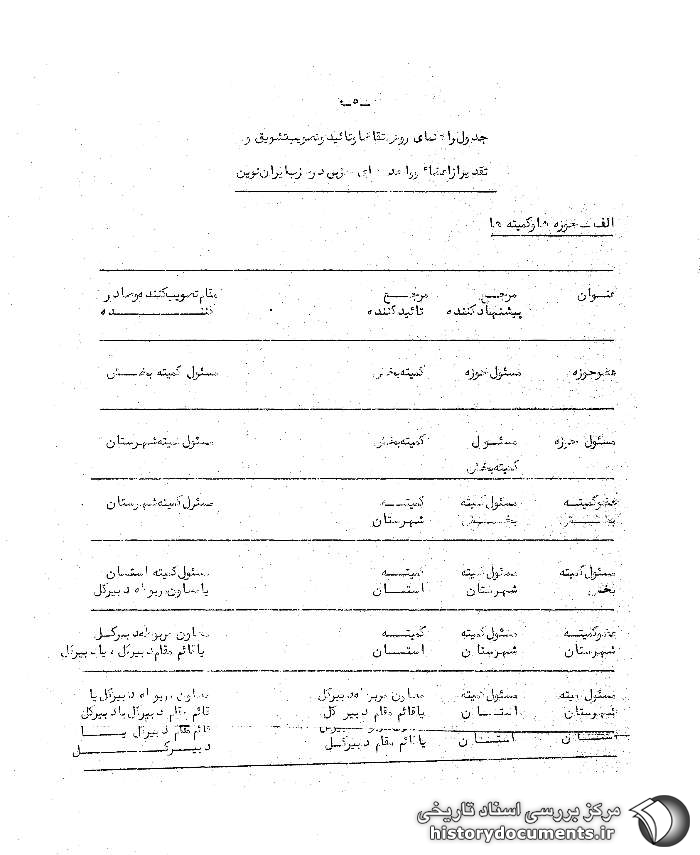 ـ ۵ ـ
جدول راهنمای روش تقاضا و تائید و تصویب تشویق و
تقدیر از اعضاء و واحدهای حزبی در حزب ایران نوین
الف ـ حوزه ها و کمیته ها
عنوان مرجع مرجع مقام تصویب کننده و صادر
پیشنهاد کننده تائید کننده کننده
عضو حوزه مسئول حوزه کمیته بخش مسئول کمیته بخش
مسئول حوزه مسئول کمیته بخش مسئول کمیته شهرستان
کمیته بخش
عضو کمیته مسئول کمیته کمیته مسئول کمیته شهرستان
بخش بخش شهرستان
مسئول کمیته مسئول کمیته کمیته مسئول کمیته استان
بخش شهرستان استان یا معاون مربوطه دبیرکل
عضو کمیته مسئول کمیته کمیته معاون مربوطه دبیرکل
شهرستان شهرستان استان یا قائم مقام دبیرکل ، یا دبیرکل
مسئول کمیته مسئول کمیته معاون مربوطه دبیرکل معاون مربوطه دبیرکل یا
شهرستان استان یا قائم مقام دبیر کل قائم مقام دبیرکل یا دبیرکل
استان استان یا قائم مقام دبیرکل قائم مقام دبیرکل یا
دبیرکل
مرکز بررسی اسناد تاریخی
historydocuments.ir